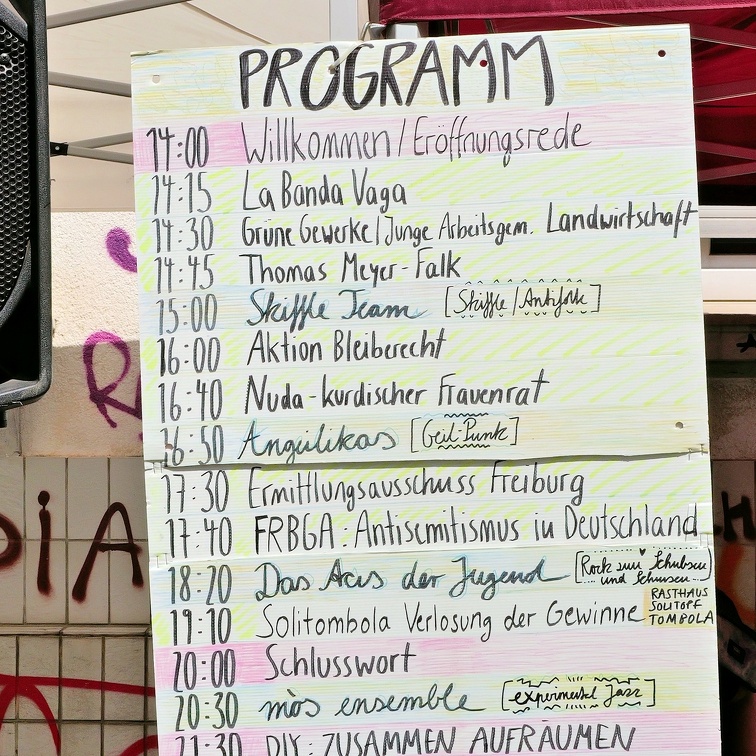 PROGRAMM
14:00 Willkommen/Eröffnungsrede
14:15 La Banda Vaga
14:30 Grüne Gewerke/Junge Arbeitsgem. Landwirtschaft
14:45 Thomas Meyer-Falk
15:00 Skiffle Team [Skiffle/Antifolk]
16:00 Aktion Bleiberecht
16:40 Nuda-kurdischer Frauenrat
16:50 Angülikas [Geil-Punk]
17:30 Ermittlungsausschuss Freiburg
17:40 FRBGA: Antisemitismus in Deutschland
18:20 Das Aus der Jugend [Rock zum Schubsen
und Schmusen]
19:10 Solitombola Verlosung der Gewinne RASTHAUS
SOLITOPF
TOMBOLA
20:00 Schlusswort
20:30 mòs ensemble [experimental Jazz]
21:30 DIY: ZUSAMMEN AUFRÄUMEN